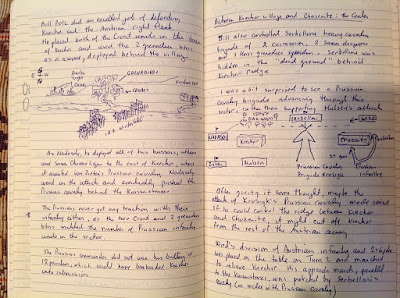 Bill Potz did an excellent job of defending
Krechor and the Austrian right flank.
He placed both of the Croat armies in the town
of Krechor and used the 2 grenadier bttns
as a reserve, deployed behind the village
GRENADIERS
Krechor
As Nadasdy, he deployed all of his hussars, uhlans
and Saxon Chevau Legers to the east of Krechor, where
it awaited Prussian cavalry. Nadasdy
went on the attack and eventually pushed the
Prussian cavalry behind the
The Prussians never got any traction with their
infantry either, as the two Croat and 2 grenadier
bttns matched the number of Prussian infantry
units in the sector.
The Prussian commander did not use his battery of
12 pounders, which could have bombarded Krechor
into submission.
Between Krechor village and Chosenitz: the Center
Bill also controlled Serbelloni's heavy cavalry
brigade of 2 Cuirassiers, 2 Saxon dragoons
and 1 Horse grenadier squadron. Serbelloni was
hidden in the "dead ground" behind
Krechor Ridge
I was a bit surprised to see a Prussian
cavalry brigade advancing through this
sector rather than supporting Hulsen's attack
Serbelloni
Krechor
Chosenitz
Hulsen
Prussian Cavalry
Brigade Krosigk
Prussian
Infantry
After giving it some thought, maybe the
attack of Krosigk's Prussian cavalry made sense
if he could control the ridge between Krechor
and Chosenitz, it might cut off Krechor
from the rest of the Austrian army.
Wied's division of Austrian infantry and
was placed on the table on Turn 2 and marched
to relieve Krechor. His approach march, parallel
to the Kaiserstrasse, was protected by Serbelloni's
cavalry (in melee with Prussian cavalry)